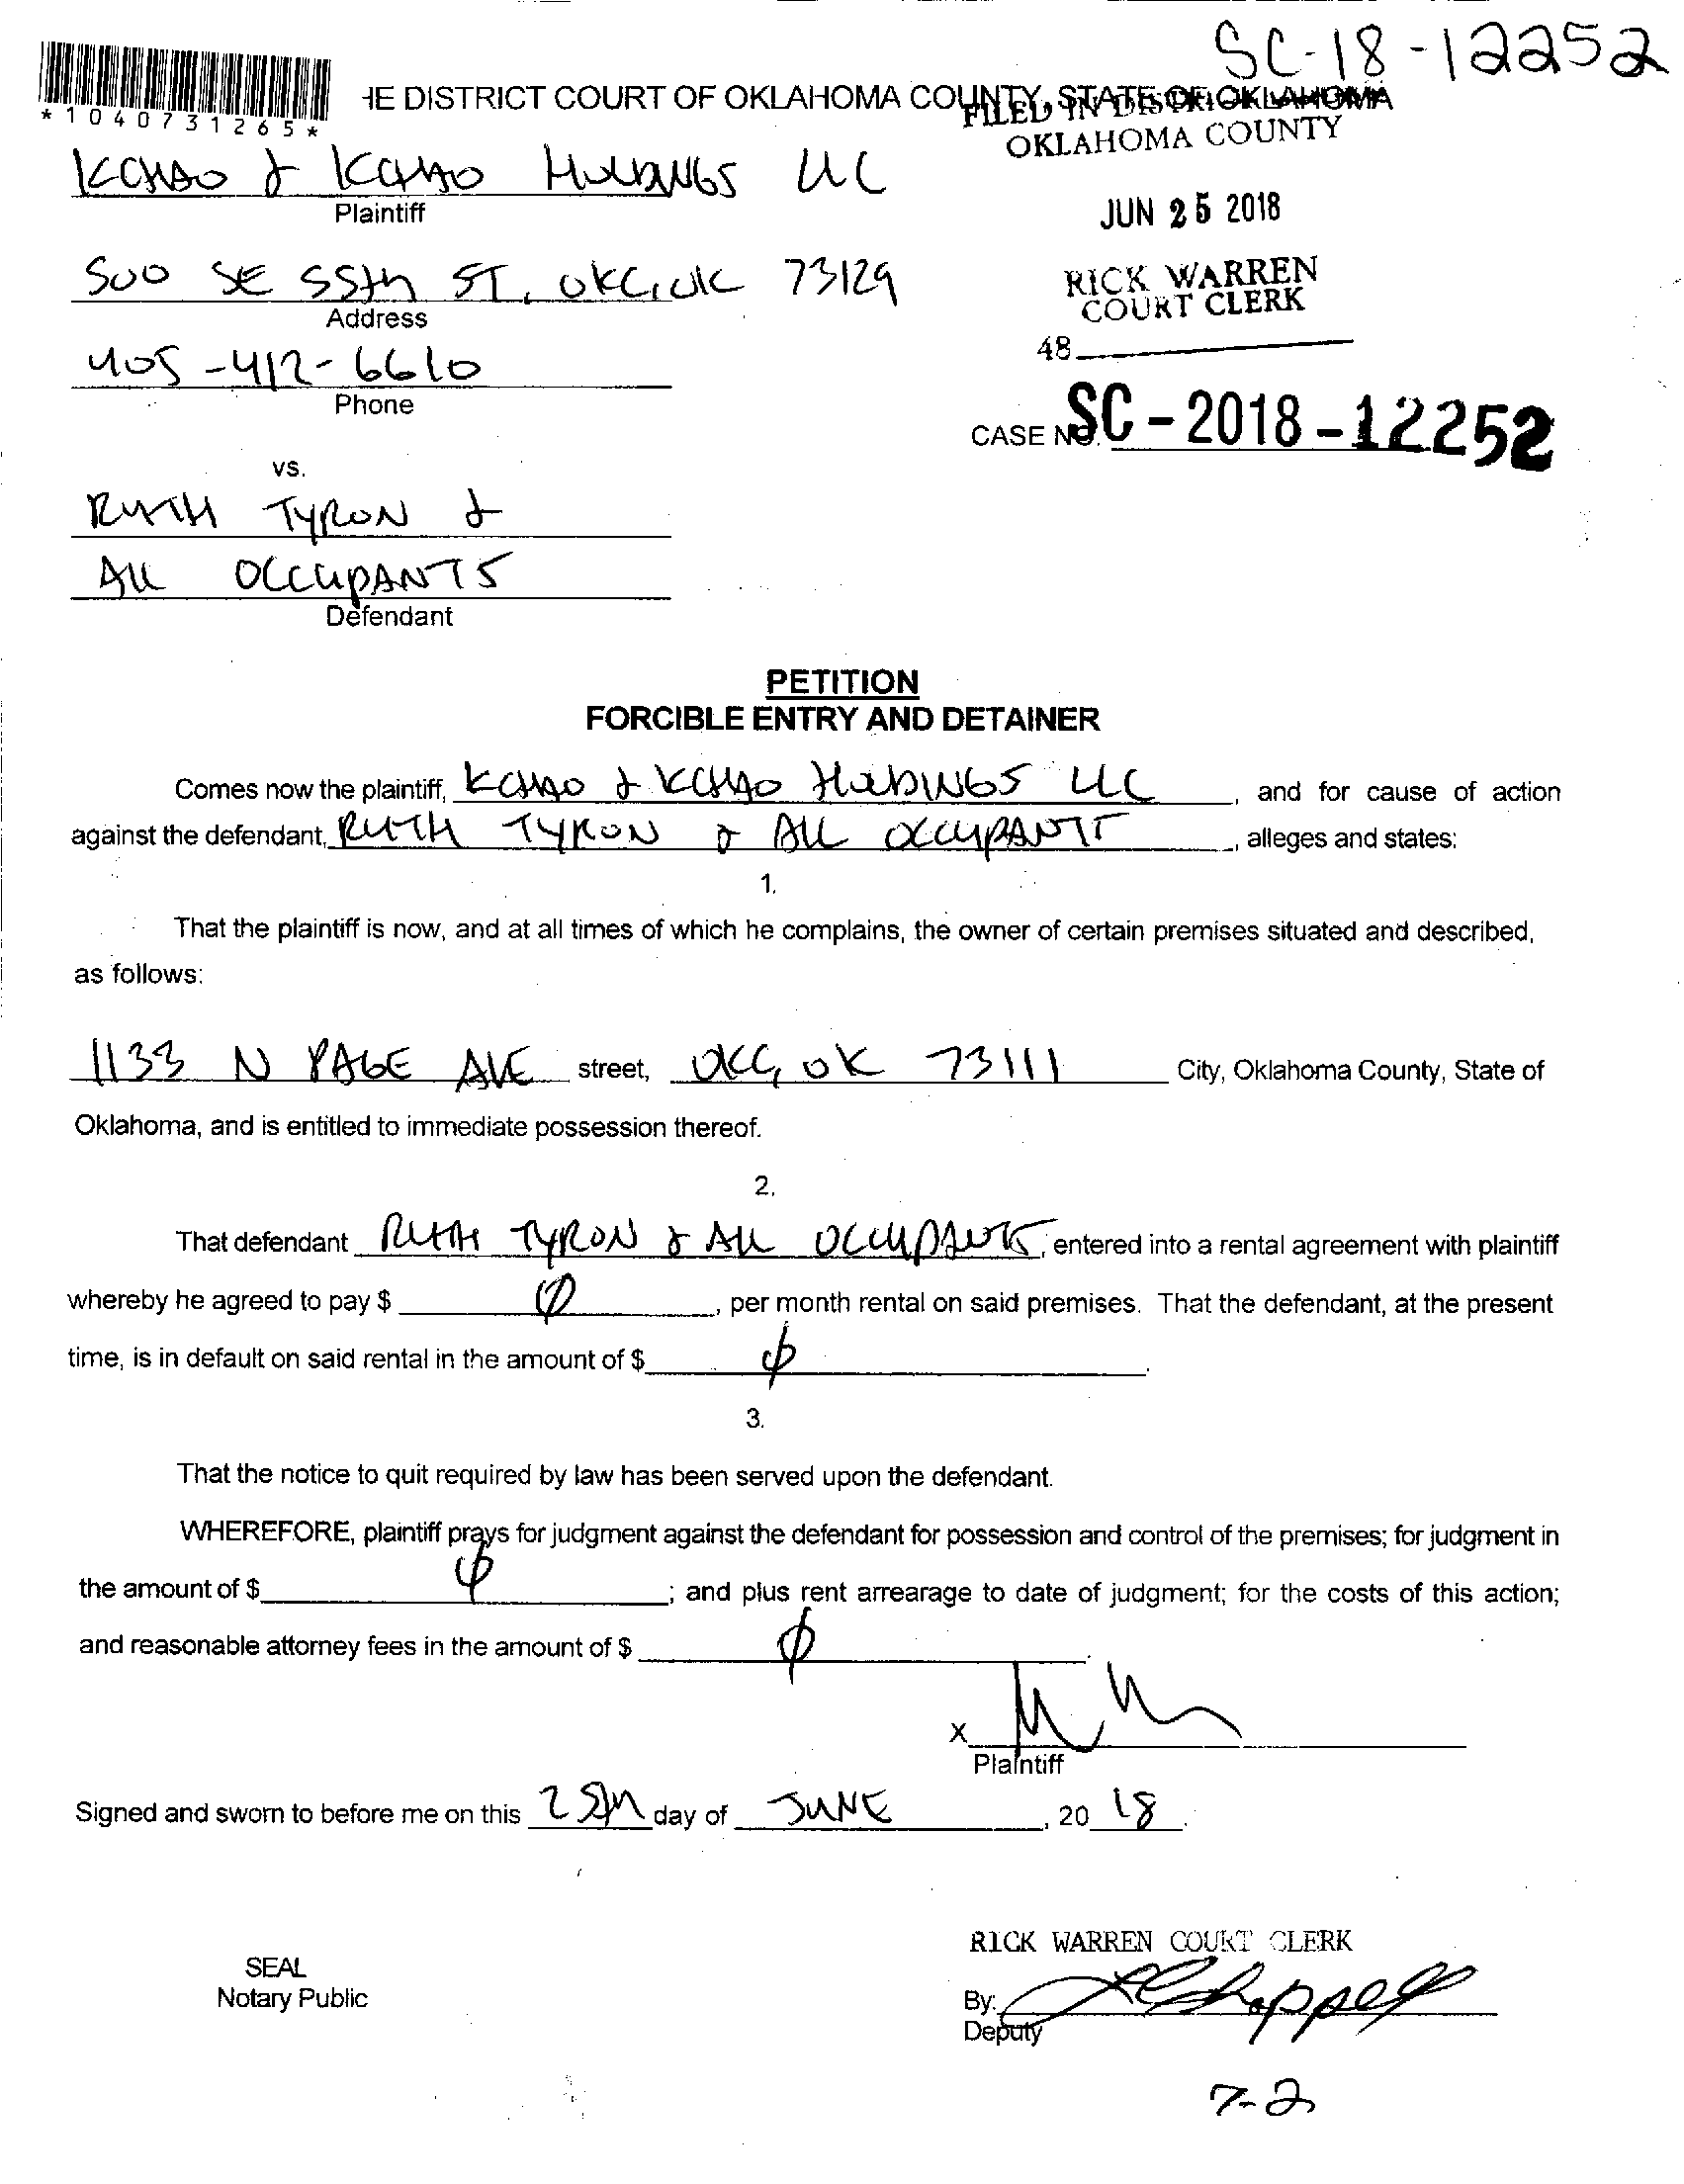 SC-18-12252
*1040731265*
HE DISTRICT COURT OF OKLAHOMA COUNTY, STATE OF OKLAHOMA
FILED IN DISTRICT
OKLAHOMA COUNTY
KCHAO & KCHAO HOLDINGS LLC
Plaintiff
JUN 25 2018
500 SE 55th ST, OKC, OK 73129
Address
RICK WARREN
COURT CLERK
405-412-6610
Phone
48
CASE NO. SC-2018-12252
vs.
RUTH TYRON &
All OCCUPANTS
Defendant
PETITION
FORCIBLE ENTRY AND DETAINER
Comes now the plaintiff, KCHAO & KCHAO HOLDINGS LLC, and for cause of action
against the defendant, RUTH TYRON & ALL OCCUPANTS, alleges and states:
1.
That the plaintiff is now, and at all times of which he complains, the owner of certain premises situated and described,
as follows:
1133 N PAGE AVE street, OKC, OK 73111 City, Oklahoma County, State of
Oklahoma, and is entitled to immediate possession thereof.
2.
That defendant RUTH TYRON & All OCCUPANTS, entered into a rental agreement with plaintiff
whereby he agreed to pay $ Ø, per month rental on said premises. That the defendant, at the present
time, is in default on said rental in the amount of $ Ø.
3.
That the notice to quit required by law has been served upon the defendant.
WHEREFORE, plaintiff prays for judgment against the defendant for possession and control of the premises; for judgment in
the amount of $ Ø; and plus rent arrearage to date of judgment; for the costs of this action;
and reasonable attorney fees in the amount of $ Ø.
X
Plaintiff
Signed and sworn to before me on this 25th day of JUNE, 20 18.
RICK WARREN COURT CLERK
SEAL
Notary Public
By:
Deputy
7-2